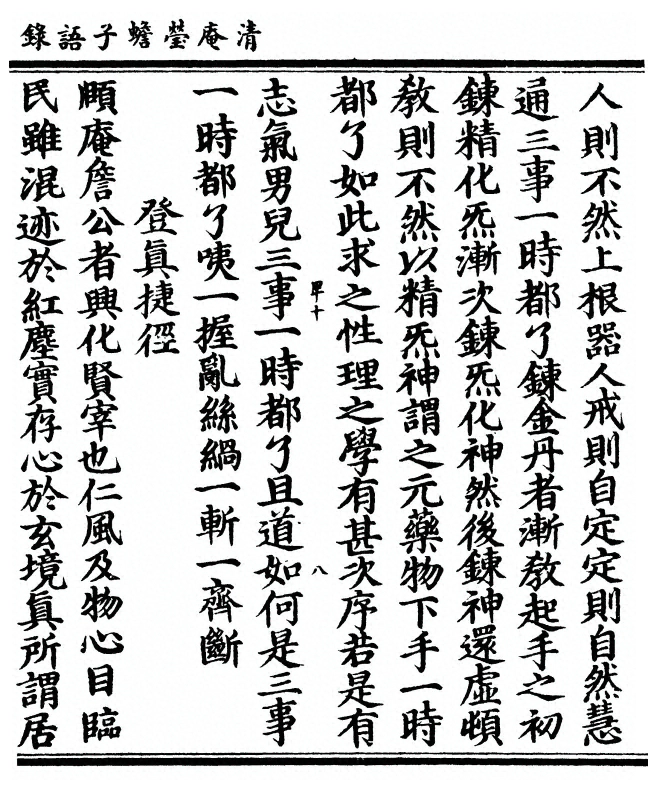 清庵瑩蟾子語錄
人則不然上根器人戒則自定定則自然慧
通三事一時都了鍊金丹者漸教起手之初
鍊精化炁漸次鍊炁化神然後鍊神還虛頓
教則不然以精炁神謂之元藥物下手一時
都了如此求之性理之學有甚次序若是有
志氣男兒三事一時都了且道如何是三事
一時都了咦一握亂絲綱一斬一齊斷
登眞捷徑
順庵詹公者興化賢宰也仁風及物心目臨
民雖混迹於紅塵實存心於玄境眞所謂居
八